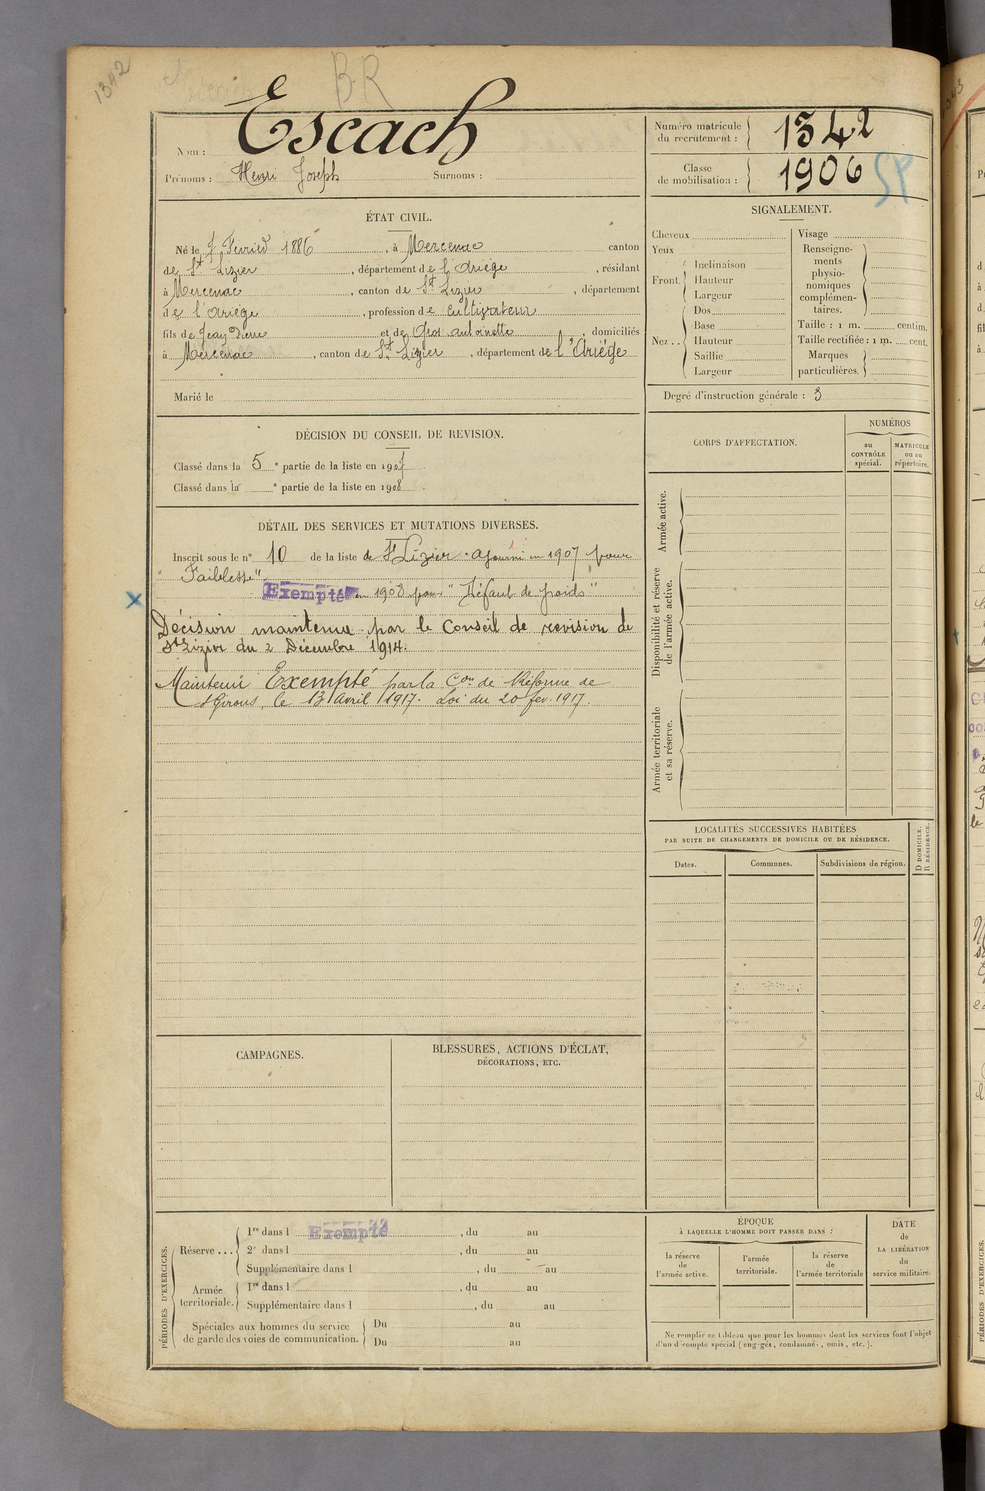 1342
B.R
Nom : Escach
Prénoms : Henri Joseph Surnoms :
Numéro matricule du recrutement : 1342
Classe de mobilisation : 1906
ÉTAT CIVIL.
Né le Février 1886, à Mercenac canton
de St Lizier, département de l'Ariège, résidant
à Mercenac, canton de St Lizier, département
de l'Ariège, profession de Cultivateur
fils de Jean Pierre et de Gros Antoinette, domiciliés
à Mercenac, canton de St Lizier, département de l'Ariège
Marié le
SIGNALEMENT.
Cheveux
Yeux
Front. Inclinaison
Hauteur
Largeur
Nez.. Dos
Base
Hauteur
Saillie
Largeur
Visage
Renseigne-
ments
physio-
nomiques
complémen-
taires.
Taille : 1 m. centim.
Taille rectifiée : 1 m. cent.
Marques
particulières.
Degré d'instruction générale : 3
DÉCISION DU CONSEIL DE REVISION.
Classé dans la 5e partie de la liste en 1907
Classé dans la e partie de la liste en 1908
DÉTAIL DES SERVICES ET MUTATIONS DIVERSES.
Inscrit sous le n° 10 de la liste de St Lizier. Ajourné en 1907 pour
"Faiblesse"
Exempté en 1908 pour "Défaut de poids"
Décision maintenue par le Conseil de revision de
St Lizier du 2 Décembre 1914.
Maintenu Exempté par la Con de Réforme de
St Girons, le 13 Avril 1917. Loi du 20 fév. 1917.
CORPS D'AFFECTATION.
NUMÉROS
au
CONTRÔLE
spécial.
MATRICULE
ou au
répertoire.
Armée active.
Disponibilité et réserve
de l'armée active.
Armée territoriale
et sa réserve.
LOCALITÉS SUCCESSIVES HABITÉES
PAR SUITE DE CHANGEMENTS DE DOMICILE OU DE RÉSIDENCE.
Dates.
Communes.
Subdivisions de région.
D DOMICILE.
R RÉSIDENCE.
CAMPAGNES.
BLESSURES, ACTIONS D'ÉCLAT,
DÉCORATIONS, ETC.
PÉRIODES D'EXERCICES.
Réserve... 1re dans l Exempté, du au
2e dans l, du au
Supplémentaire dans l, du au
Armée
territoriale. 1re dans l, du au
Supplémentaire dans l, du au
Spéciales aux hommes du service
de garde des voies de communication. Du au
Du au
ÉPOQUE
À LAQUELLE L'HOMME DOIT PASSER DANS :
la réserve
de
l'armée active.
l'armée
territoriale.
la réserve
de
l'armée territoriale
DATE
de
LA LIBÉRATION
du
service militaire.
Ne remplir ce tableau que pour les hommes dont les services font l'objet
d'un décompte spécial (engagés, condamnés, omis, etc.).